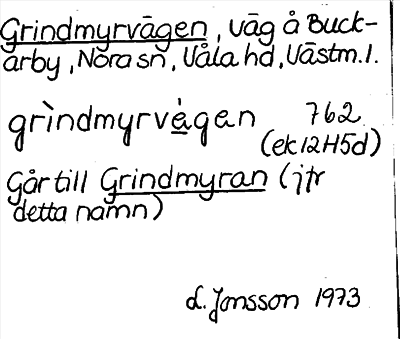 Grindmyrvägen, väg å Buck-
arby, Nora sn, Våla hd, Västm. l.
grìndmyrvȧgen 762
(ek 12H5d)
Går till Grindmyran (jfr
detta namn)
L. Jonsson 1973